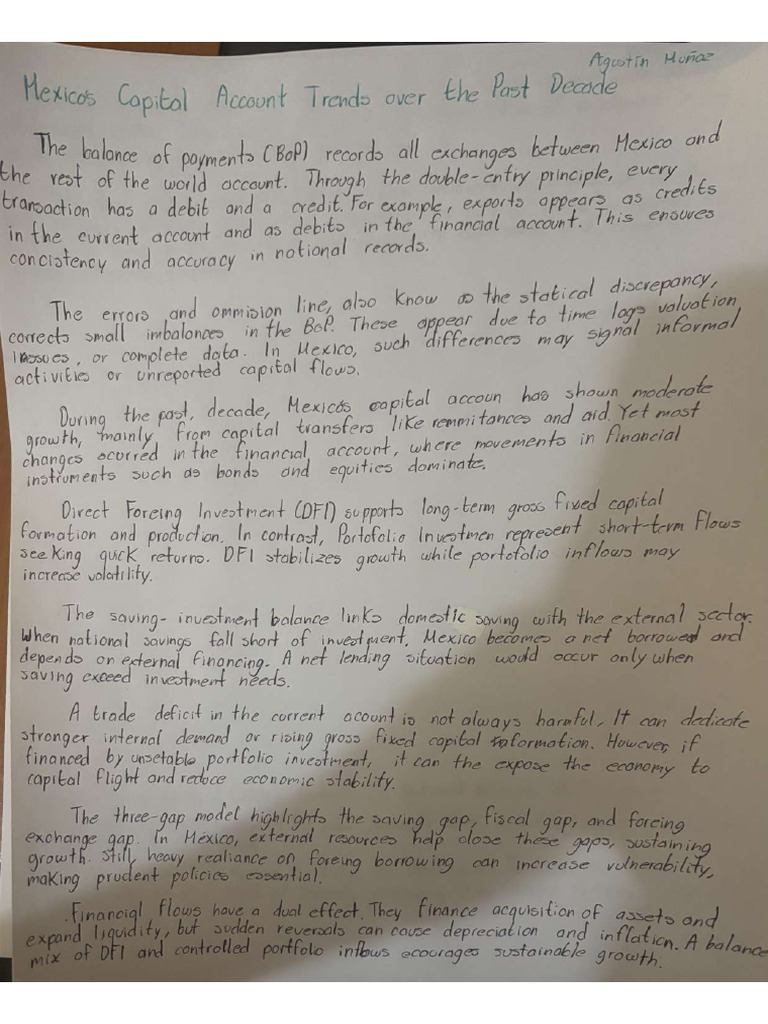 Agustín Muñoz
Mexico's Capital Account Trends over the Past Decade
The balance of payments (BoP) records all exchanges between Mexico and
the rest of the world account. Through the double-entry principle, every
transaction has a debit and a credit. For example, exports appears as credits
in the current account and as debits in the financial account. This ensures
concistency and accuracy in notional records.
The errors and ommision line, also know as the statical discrepancy,
corrects small imbalances in the BoP. These appear due to time lags valuation
issues, or complete data. In Mexico, such differences may signal informal
activities or unreported capital flows.
During the past, decade, Mexico's capital accoun has shown moderate
growth, mainly from capital transfers like remmitances and aid. Yet most
changes ocurred in the financial account, where movements in financial
instruments such as bonds and equities dominate.
Direct Foreing Investment (DFI) supports long-term gross fixed capital
formation and production. In contrast, Portofolio Investmen represent short-term flows
seeking quick returns. DFI stabilizes growth while portofolio inflows may
increase volatility.
The saving-investment balance links domestic saving with the external sector.
When national savings fall short of investment, Mexico becomes a net borrowed and
depends on external financing. A net lending situation would occur only when
saving exceed investment needs.
A trade deficit in the current acount is not always harmful, It can dedicate
stronger internal demand or rising gross fixed capital information. However, if
financed by unsetable portfolio investment, it can the expose the economy to
capital flight and reduce economic stability.
The three-gap model highlights the saving gap, fiscal gap, and foreing
exchange gap. In México, external resources help close these gaps, sustaining
growth. still, heavy realiance on foreing borrowing can increase vulnerability,
making prudent policies essential.
.Financial flows have a dual effect. They finance acquisition of assets and
expand liquidity, but sudden reversals can cause depreciation and inflation. A balance
mix of DFI and controlled portfolio inflows ecourages sustainable growth.